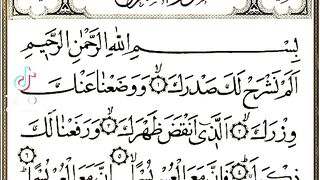 بِسْمِ اللهِ الرَّحْمٰنِ الرَّحِيْمِ
اَلَمْ نَشْرَحْ لَكَ صَدْرَكَ ۙ﴿۱﴾ وَوَضَعْنَا عَنْكَ
وِزْرَكَ ۙ﴿۲﴾ الَّذِيْٓ اَنْقَضَ ظَهْرَكَ ۙ﴿۳﴾ وَرَفَعْنَا لَكَ
ذِكْرَكَ ؕ﴿۴﴾ فَاِنَّ مَعَ الْعُسْرِ يُسْرًا ۙ﴿۵﴾ اِنَّ مَعَ الْعُسْرِ يُسْرًا ؕ﴿۶﴾